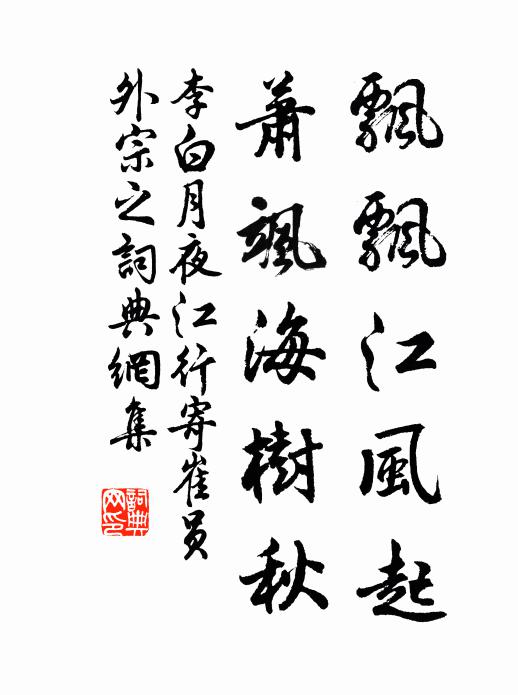 飄飄江風起
蕭颯海樹秋
李白月夜江行寄崔員
外宗之詞典網集
詞典网印